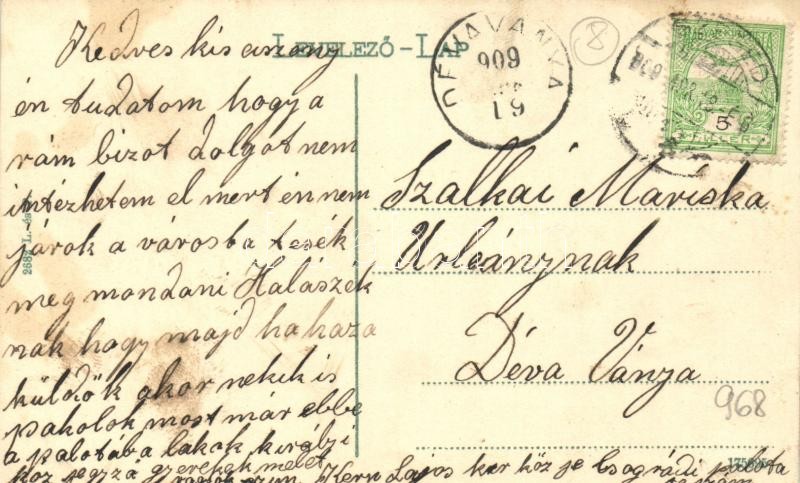 LEVELEZŐ-LAP
Kedves kis aszony
én tudatom hogy a
rám bizot dolgot nem
intézhetem el mert én nem
járok a városba tesék
meg mondani Halászék
nak hogy majd ha haza
küldök akor nekik is
pakolok most már ebbe
a palotába lakok királyi
köz jegyző gyerekek melet
Kern Lajos kir köz je Csográdi palota
Szalkai Mariska
Urleánynak
Déva Ványa
DÉVAVÁNYA
909
5
968
8